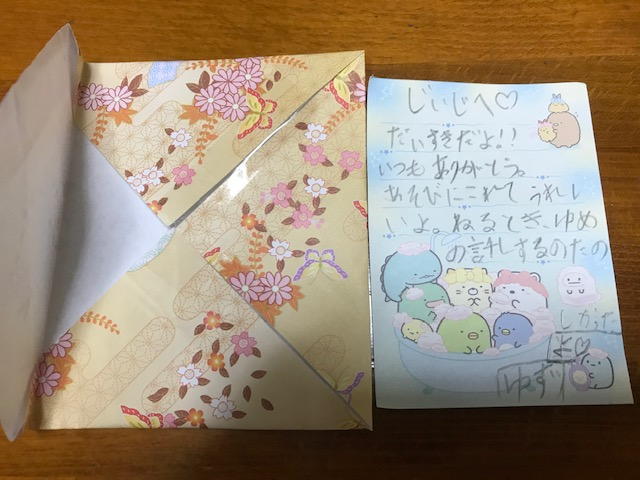 じいじへ♡
だいすきだよ!!
いつもありがとう。
あそびにこれてうれし
いよ。ねるとき、ゆめ
の話しするのたの
しかった
♡
ゆず